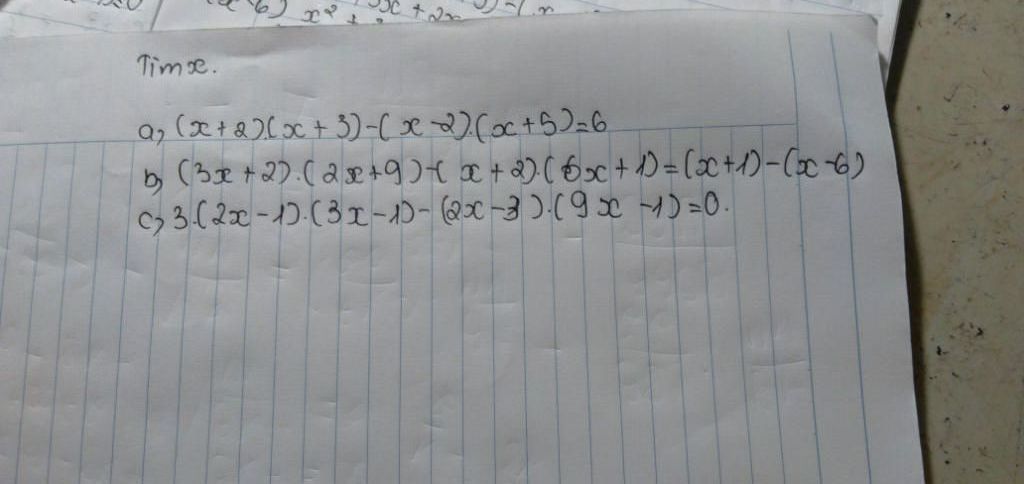 Tìm x.
a, (x+2)(x+3)-(x-2).(x+5)=6
b, (3x+2).(2x+9)-(x+2).(6x+1)=(x+1)-(x-6)
c, 3.(2x-1).(3x-1)-(2x-3).(9x-1)=0.